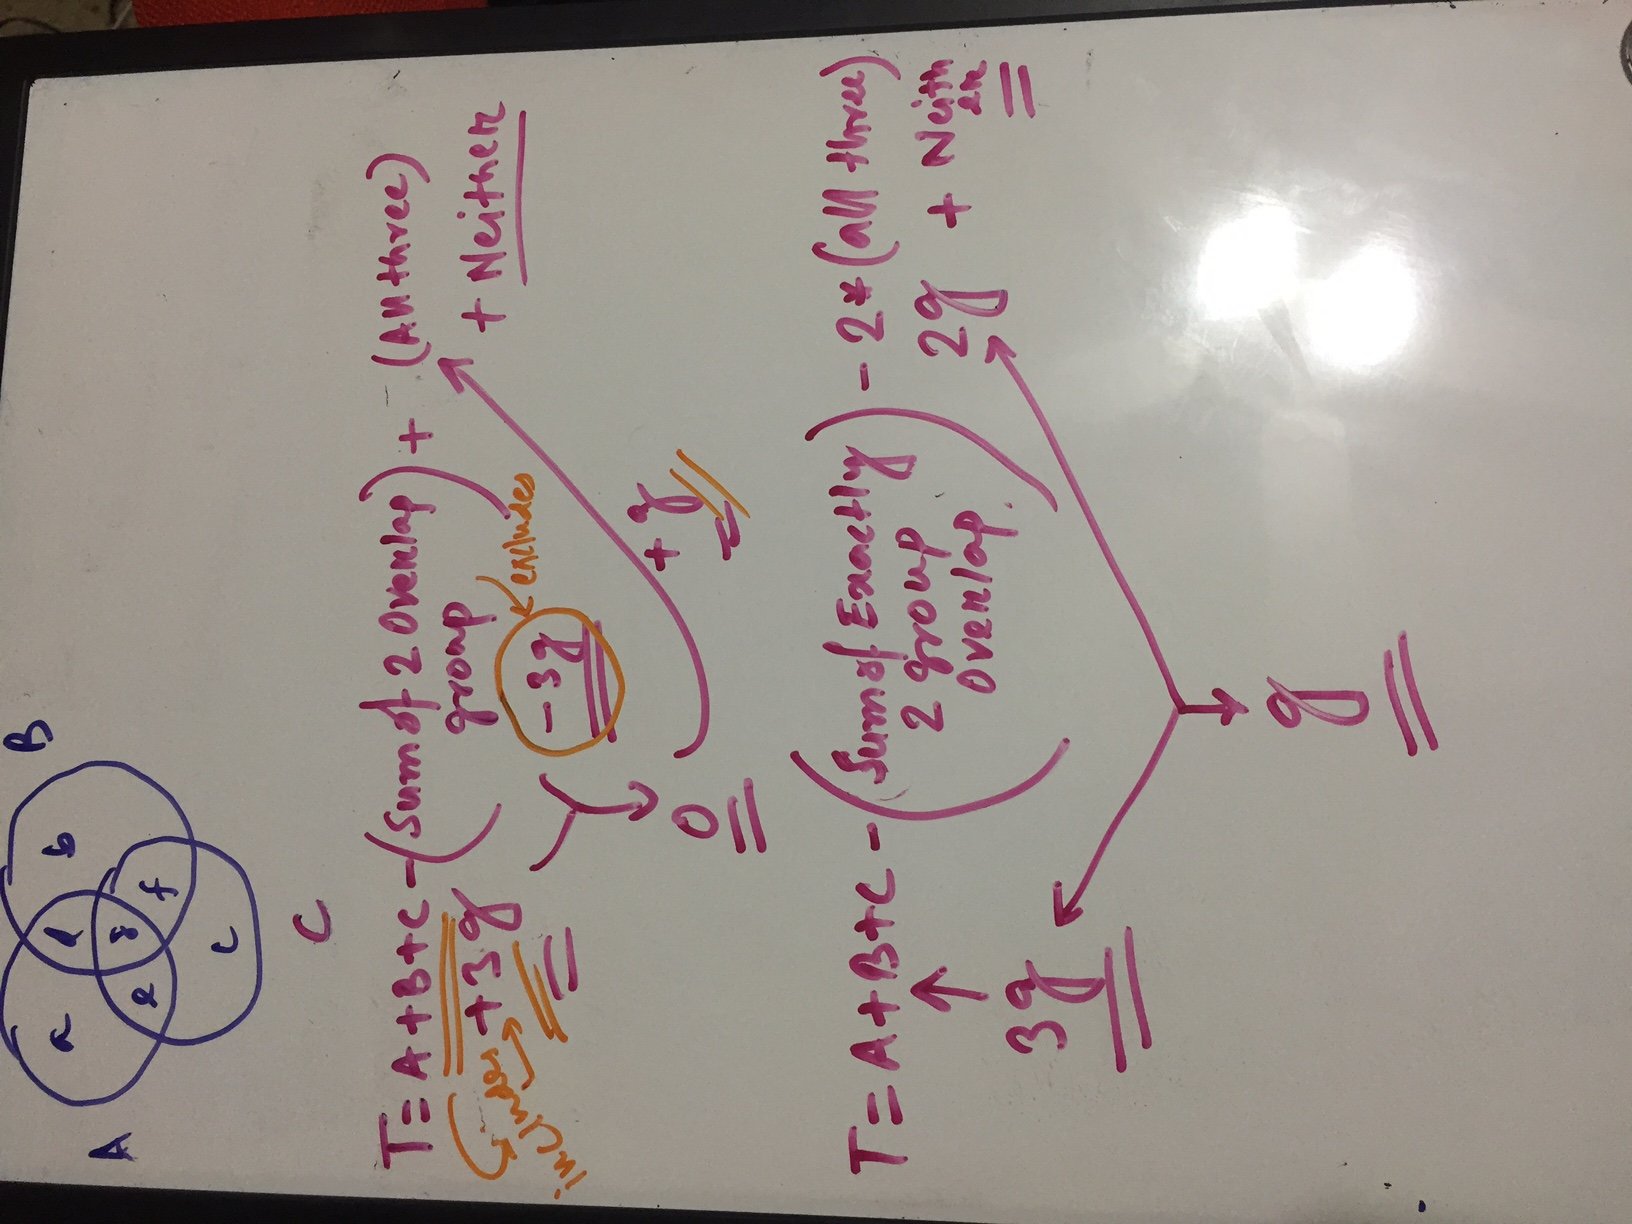 A
B
a
d
b
e
g
f
c
C
T = A+B+C - (Sum of 2 Overlap) + (All three)
group
+ Neither
includes
+3g
-3g
excludes
0
+g
T = A+B+C - (Sum of Exactly) - 2*(all three)
2 group
Overlap.
2g
+ Neith
er
3g
g